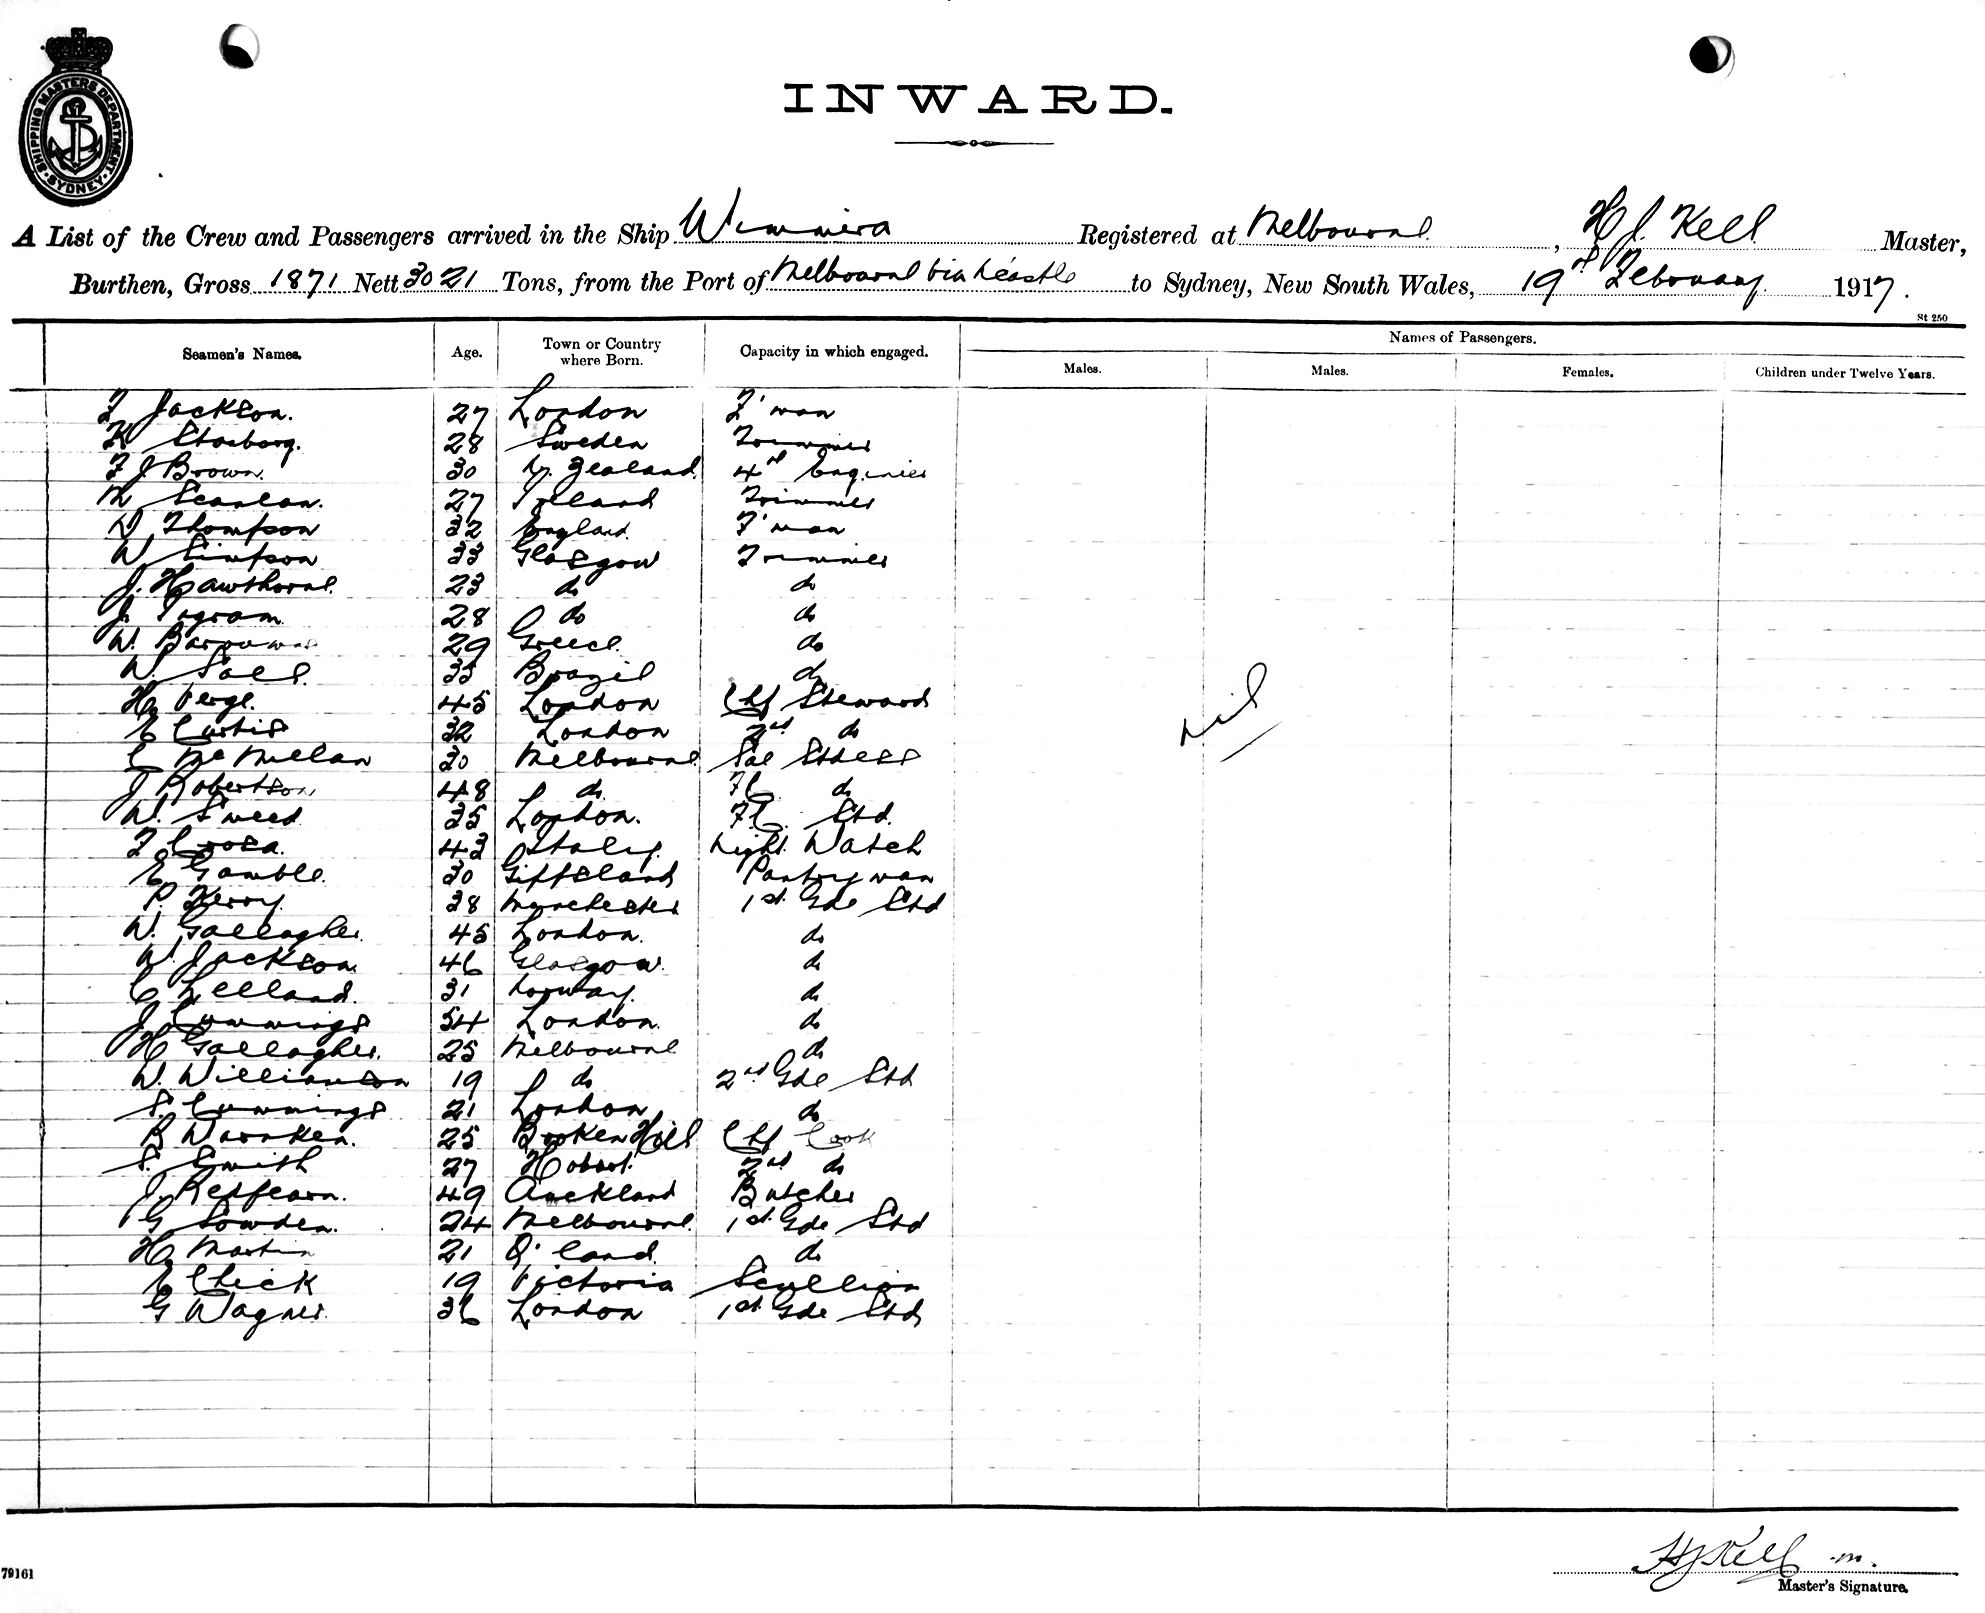 INWARD.
SHIPPING MASTERS DEPARTMENT. SYDNEY.
A List of the Crew and Passengers arrived in the Ship Wimmera Registered at Melbourne, H J. Kell Master,
Burthen, Gross 1871 Nett 3021 Tons, from the Port of Melbourne via N'castle to Sydney, New South Wales, 19th February 1917.
St 250
Seamen's Names. Age. Town or Country where Born. Capacity in which engaged. Names of Passengers.
Males. Males. Females. Children under Twelve Years.
F Jackson. 27 London F'man
28 Sweden Trimmer
F J Brown. 30 N. Zealand. 4th Engineer
M Scanlan. 27 Ireland Trimmer
D Thompson 32 England. F'man
W Simpson 33 Glasgow Trimmer
J. Hawthorne. 23 do do
J. Ingram 28 do do
W. 29 Greece. do
W. 35 Brazil do
H. Verge. 45 London Chf Steward
E Curtis 32 London 2nd do
C McMillan 30 Melbourne Sal Stdess
J Robertson 48 do FC do
W. Sweed 35 London. FC. Std.
F Crosa. 43 Italy. Night Watch
E Gamble. 30 Gippsland Pantryman
P. Kerry. 38 Manchester 1st Gde Std
W. Gallagher. 45 London. do
W. Jackson 46 Glasgow. do
C Lelland. 31 Norway. do
J Cummings 54 London. do
H Gallagher. 25 Melbourne do
W. Williamson 19 do 2nd Gde Std
S. Cummings 21 London do
B Warnken. 25 Broken Hill Chf Cook
S. Smith 27 Hobart. 2nd do
J. Redfearn. 49 Auckland Butcher
G Sowden. 24 Melbourne. 1st Gde Std
H. Martin 21 Q'land. do
E Chick 19 Victoria Scullion
G Wagner. 36 London 1st Gde Std
Nil
H J Kell m.
Master's Signature.
79161